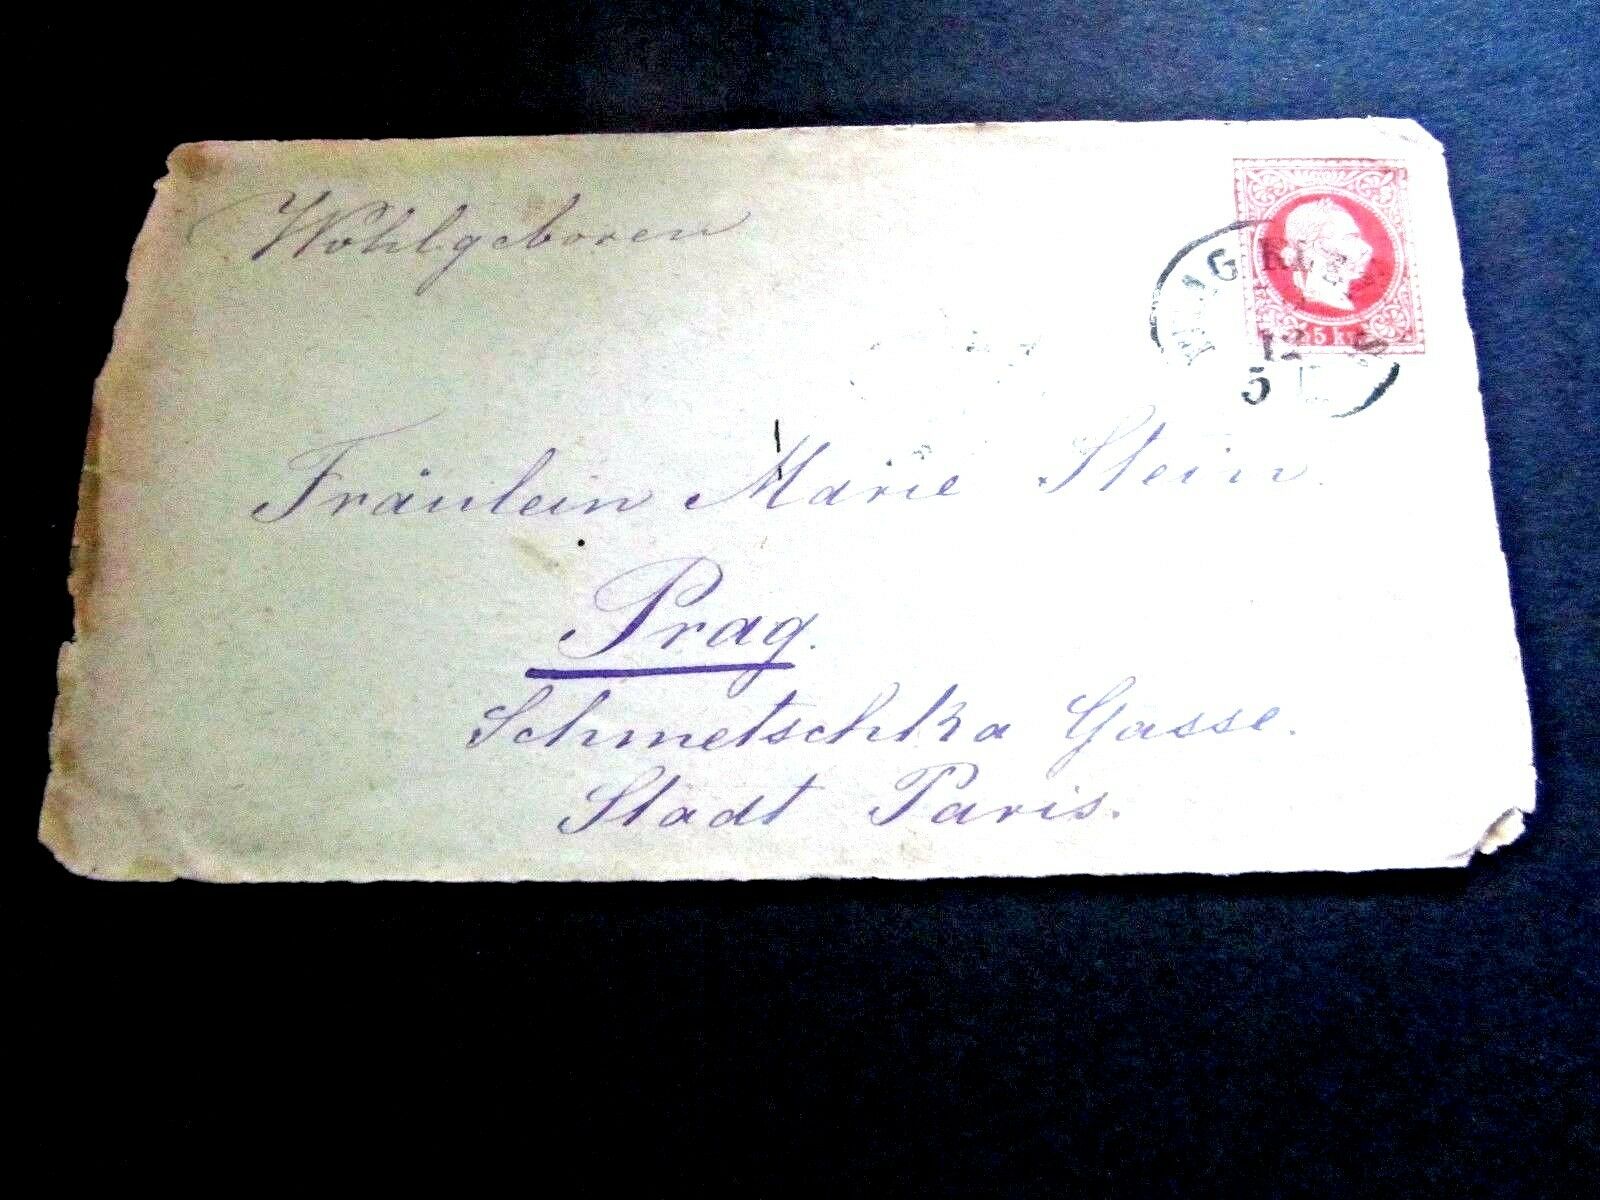 Wohlgeboren
PRAG KL
12
5
5 kr
Fräulein Marie Stein.
Prag.
Schmetschka Gasse.
Stadt Paris.